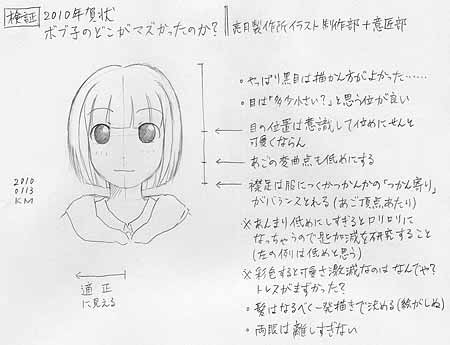 検証
2010年賀状
ボブ子のどこがマズかったのか?
亮月製作所イラスト制作部+意匠部
・やっぱり黒目は描かん方がよかった……
・目は「多少小さい?」と思う位が良い
← 目の位置は意識して低めにせんと
可愛くならん
← あごの変曲点も低めにする
← 襟足は服につくかつかんかの「つかん寄り」
がバランスとれる(あご頂点あたり)
※あんまり低めにしすぎるとロリロリに
なっちゃうので匙加減を研究すること
(左の例は低めと思う)
※彩色すると可愛さ激減なのはなんでや?
トレスがまずかった?
・髪はなるべく一発描きで決める(絵がしぬ)
・両眼は離しすぎない
2010
0113
KM
適正
に見える